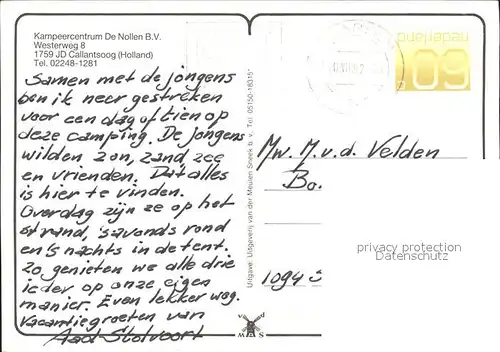 Kampeercentrum De Nollen B.V.
Westerweg 8
1759 JD Callantsoog (Holland)
Tel. 02248-1281
Samen met de jongens
ben ik neer gestreken
voor een dag of tien op
deze camping. De jongens
wilden zon, zand zee
en vrienden. Dat alles
is hier te vinden.
Overdag zijn ze op het
strand, 'savonds rond
en 's nachts in de tent.
Zo genieten we alle drie
ieder op onze eigen
manier. Even lekker weg.
Vacantiegroeten van
Aad Stolvoort
Uitgave: Uitgeverij van der Meulen Sneek b.v. Tel. 05150-18315*
v d
M S
nederland
60
Mw. M.v.d. Velden
Bo.
1094
privacy protection
Datenschutz